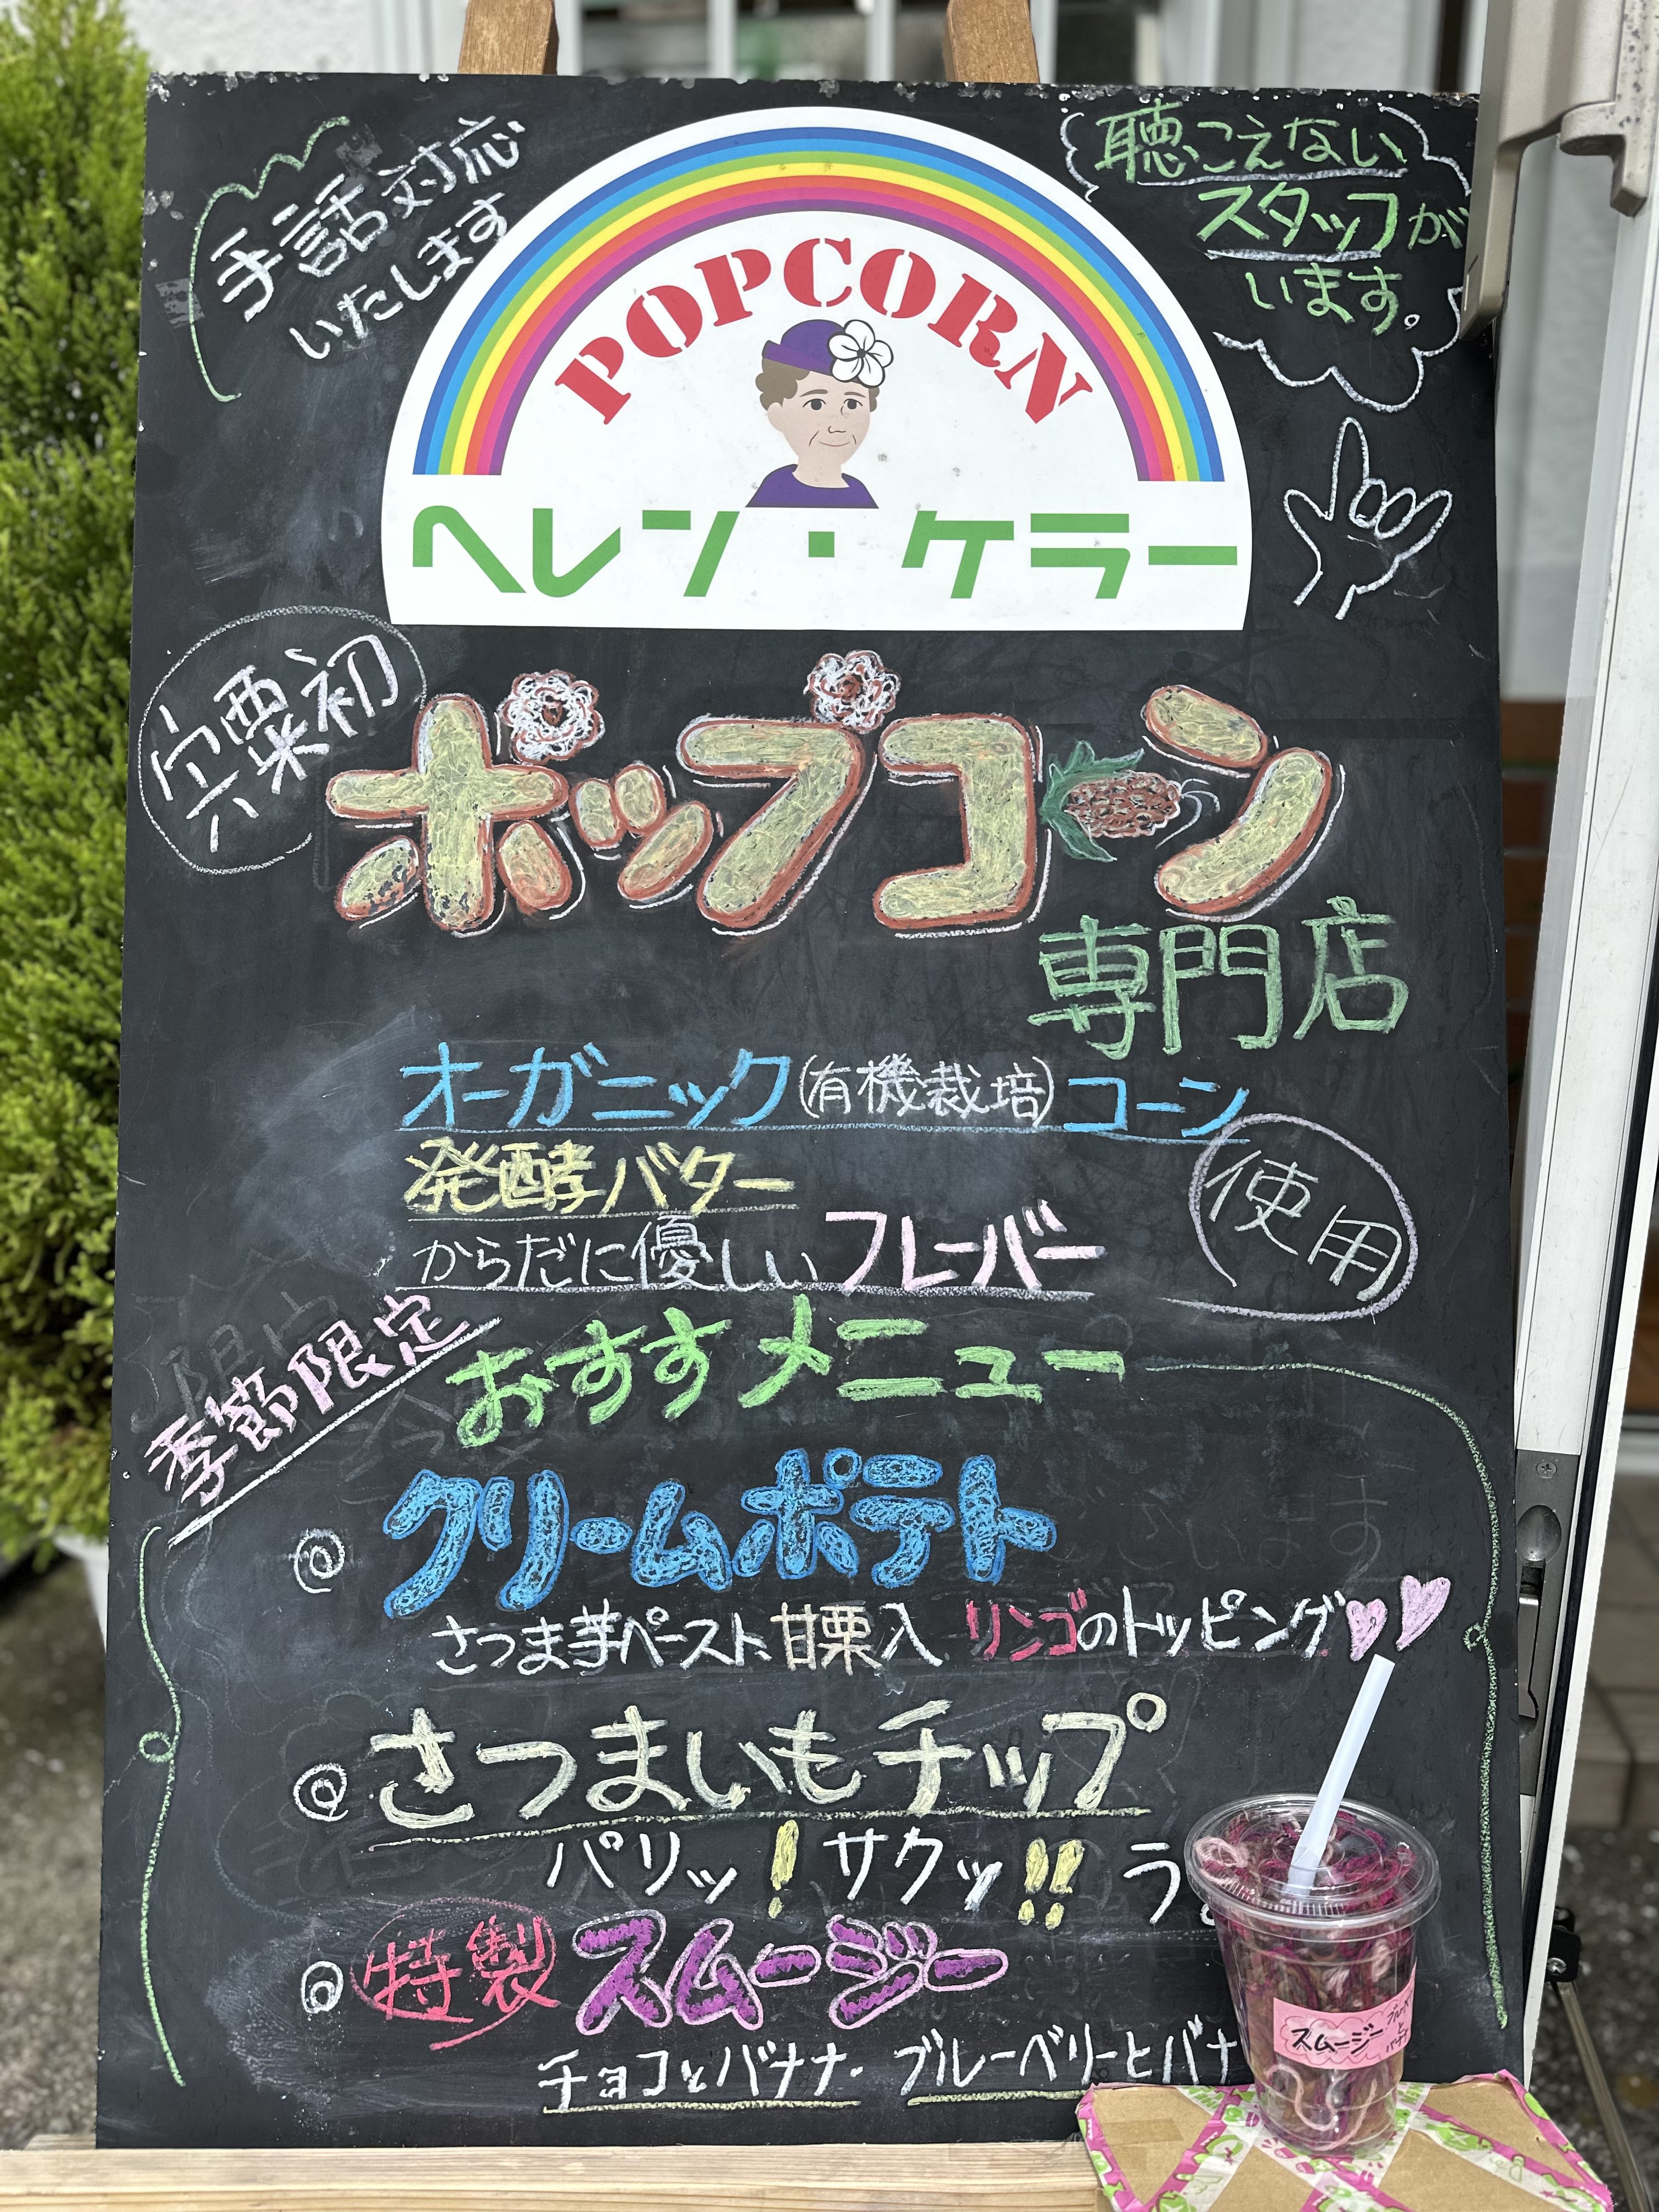 手話対応
いたします
聴こえない
スタッフが
います。
POPCORN
ヘレン・ケラー
宍粟初
ポップコーン
専門店
オーガニック(有機栽培)コーン
発酵バター
からだに優しいフレーバー
使用
季節限定
おすすメニュー
@ クリームポテト
さつま芋ペースト、甘栗入 リンゴのトッピング
@ さつまいもチップ
パリッ!サクッ!! う
@ 特製 スムージー
チョコとバナナ・ ブルーベリーとバナ
スムージー